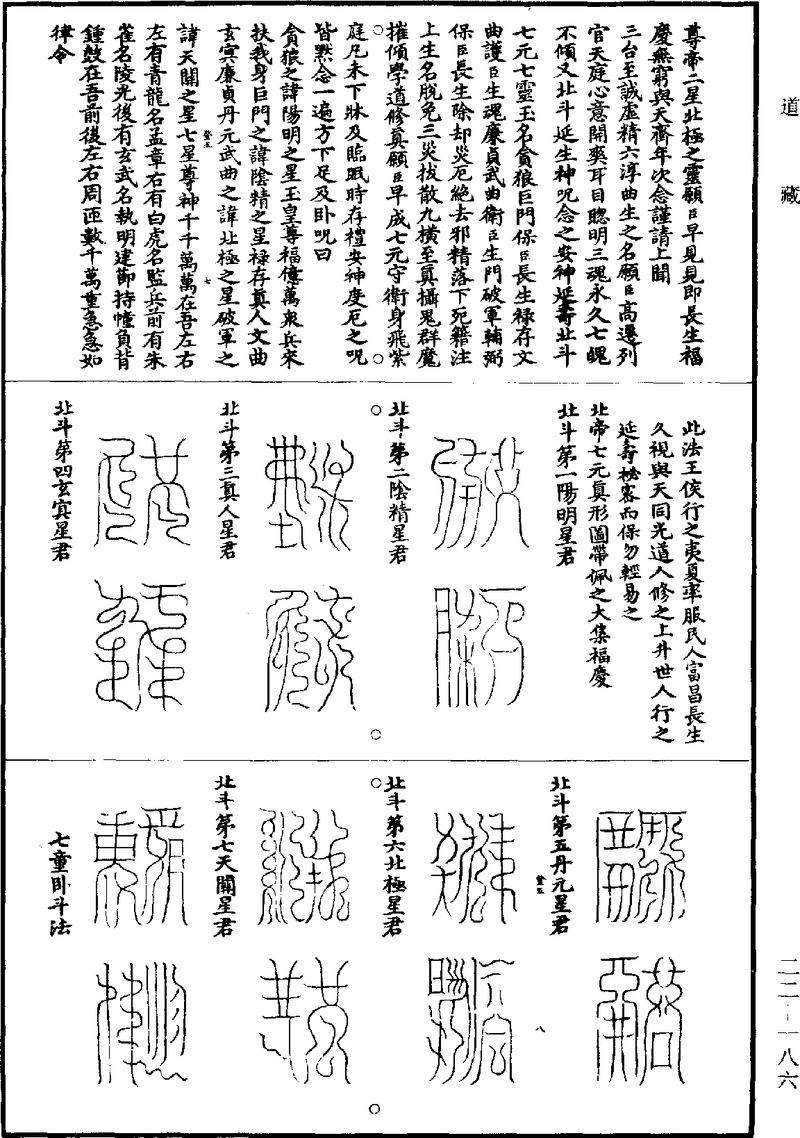 道藏
尊帝二星北極之靈願臣早見見即長生福
慶無窮與天齊年次念謹請上開
三台至誠虛精六淳曲生之名願臣高遷列
官天庭心意開爽耳目聰明三魂永久七魄
不傾又北斗延生神呪念之安神延壽北斗
七元七靈玉名貪狼巨門保臣長生祿存文
曲護臣生魂廉貞武曲衛臣生門破軍輔弼
保臣長生除却災厄絕去邪精落下死籍注
上生名脫免三災拔散九橫至真攝鬼群魔
摧傾學道修真願臣早成七元守衛身飛紫
庭凡未下牀及臨眠時存禮安神度厄之呪
皆默念一遍方下足及卧呪曰
貪狼之諱陽明之星玉皇尊福億萬衆兵來
扶我身巨門之諱陰精之星祿存真人文曲
玄冥廉貞丹元武曲之諱北極之星破軍之
諱天關之星七星尊神千千萬萬在吾左右
左有青龍名孟章右有白虎名監兵前有朱
雀名陵光後有玄武名執明建節持幢負背
鍾鼓在吾前後左右周匝數千萬重急急如
律令
七
此法王侯行之夷夏率服民人富昌長生
久視與天同光道人修之上升世人行之
延壽祕密而保勿輕易之
北帝七元真形圖帶佩之大集福慶
北斗第一陽明星君
北斗第二陰精星君
北斗第三真人星君
北斗第四玄冥星君
北斗第五丹元星君
八
北斗第六北極星君
北斗第七天關星君
七童卧斗法
二二-一八六